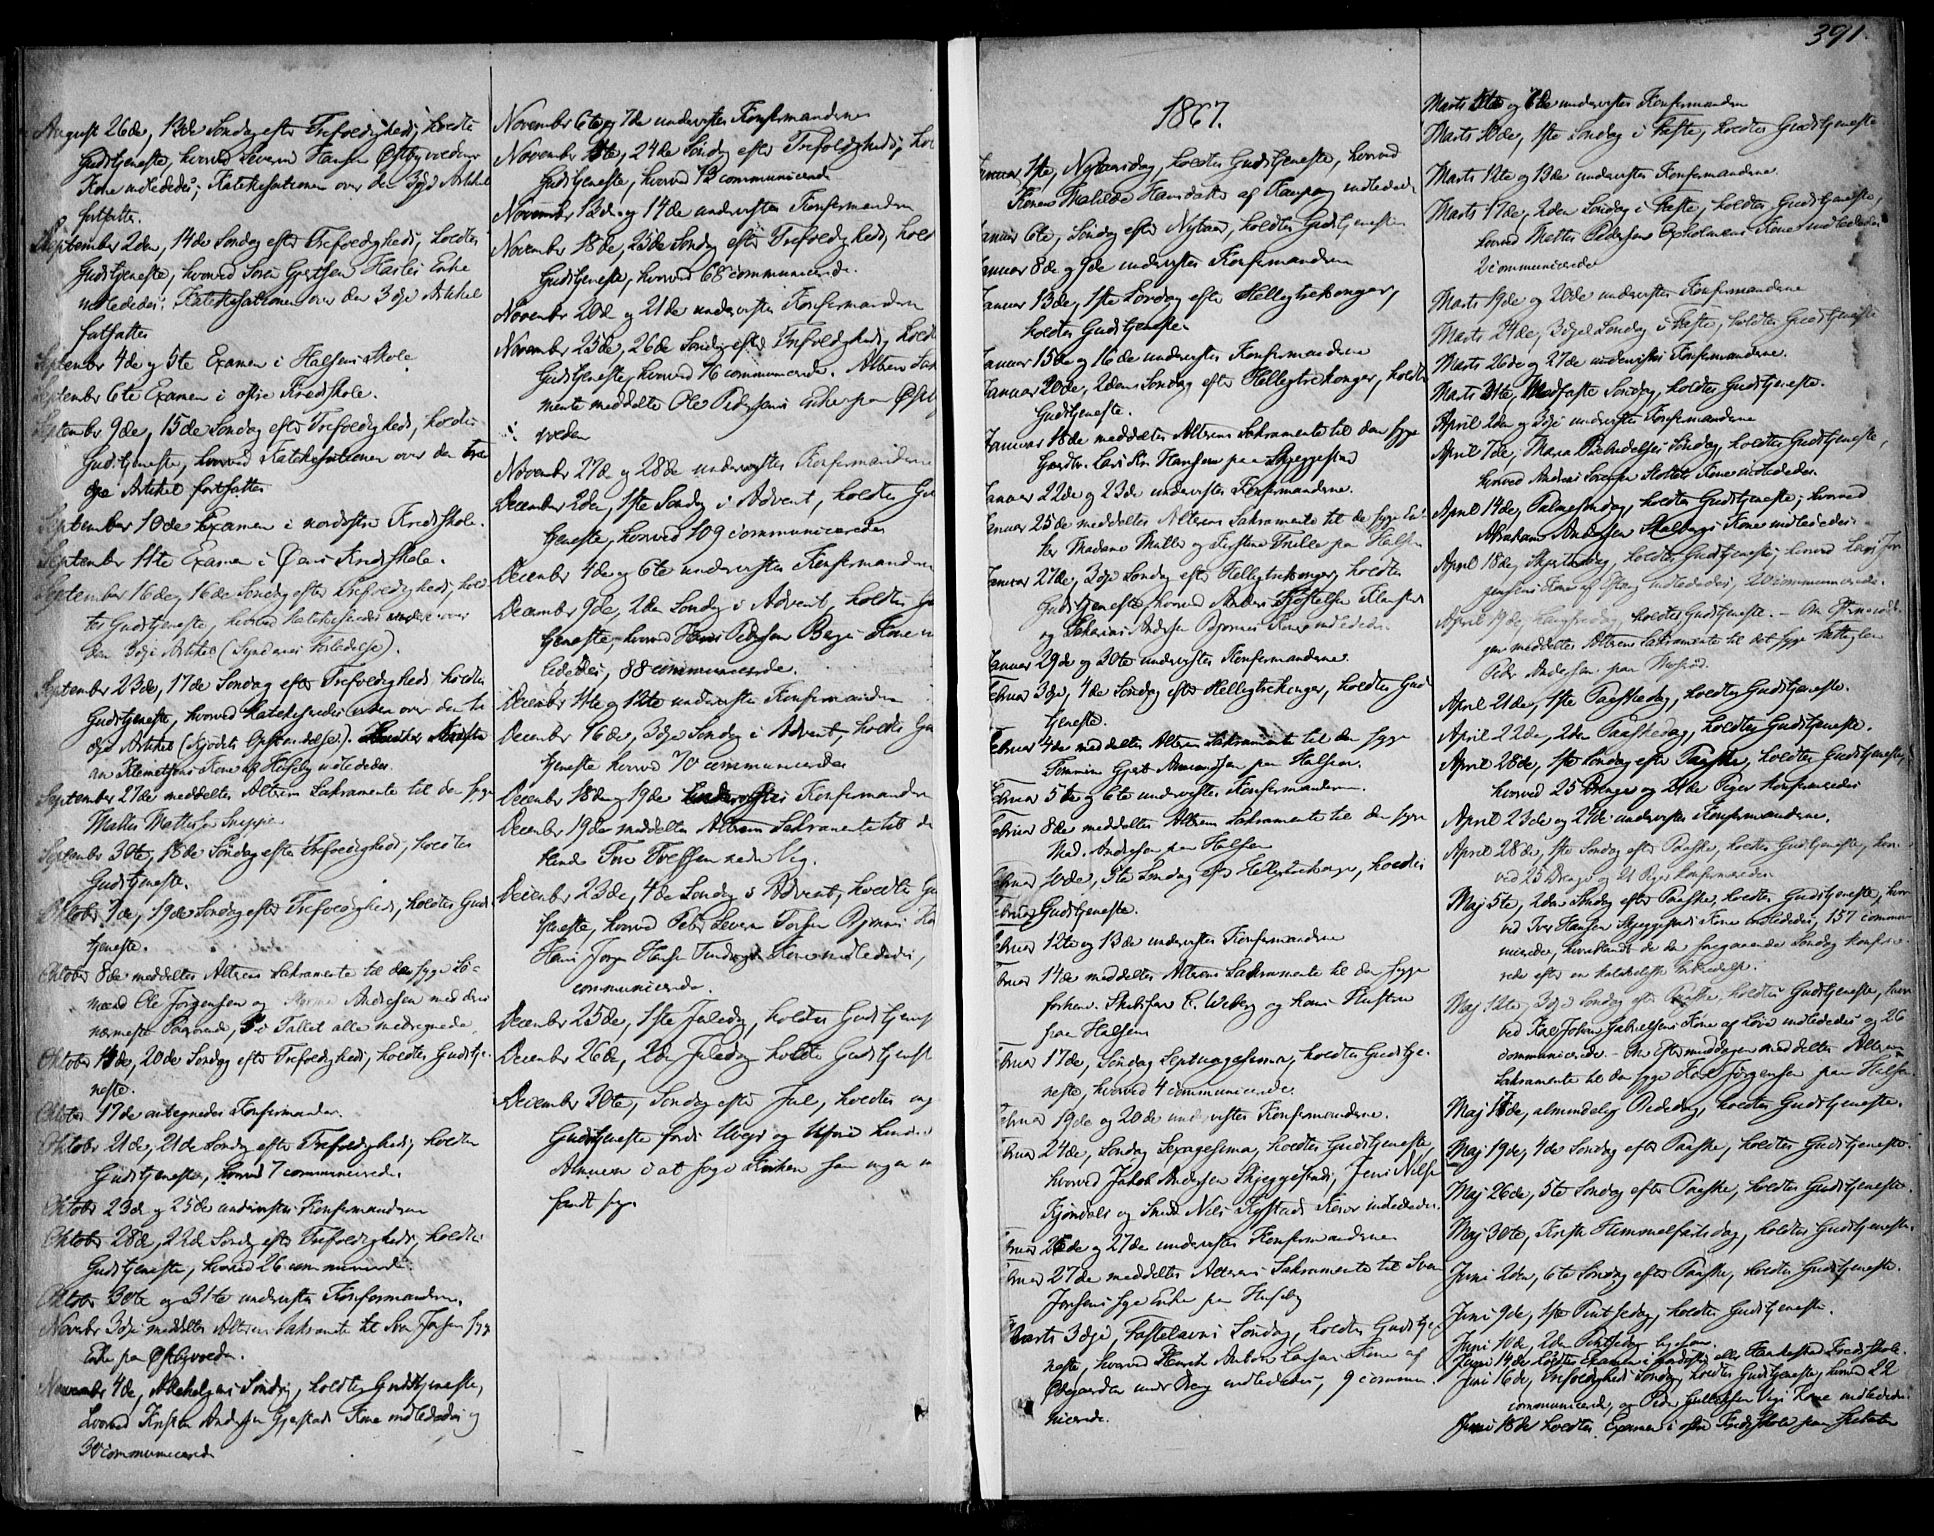 August 26de, 13de Søndag efter Trefoldighed, holdtes
Gudstjeneste, hvorved Severin Hansen Østbyvedens
Kone indlededes; Katekesationen over den 3dje Artikel
fortsattes.
September 2den, 14de Søndag efter Trefoldighed, holdtes
Gudstjeneste, hvorved Søren Enke
indlededes; Katekesationen over den 3dje Artikel
fortsattes
September 4de og 5te Examen i Halsens Skole.
September 6te Examen i østre Kredsskole.
September 9de, 15de Søndag efter Trefoldighed, holdtes
Gudstjeneste, hvorved Katekesationen over den tre
dje Artikel fortsattes
September 10de Examen i nordostre Kredsskole.
September 11te Examen i Kredsskole.
September 16de, 16de Søndag efter Trefoldighed, hold
tes Gudstjeneste, hvorved katekiseredes over
den 3dje Artikel (Syndernes Forladelse).
September 23de, 17de Søndag efter Trefoldighed, holdtes
Gudstjeneste, hvorved katekiseredes over den tre
dje Artikel (Kjødets Opstandelse).
Klemetsens Kone af Huseby indlededes.
September 27de meddeltes Alterens Sakramente til den syge
Mattes Mattesen
September 30te, 18de Søndag efter Trefoldighed, holdtes
Gudstjeneste.
Oktober 7de, 19de Søndag efter Trefoldighed, holdtes Guds
tjeneste.
Oktober 8de meddeltes Alterens Sakramente til den syge Lo=
mand Ole Jørgensen og Andersen med deres
nærmeste Paarørende, Tallet alle medregnede.
Oktober 14de, 20de Søndag efter Trefoldighed, holdtes Gudstje=
neste.
Oktober 17de antegnedes Konfirmander.
Oktober 21de, 21de Søndag efter Trefoldighed, holdtes
Gudstjeneste, hvorved 7 communicerede.
Oktober 23de og 25de undervistes Konfirmanderne
Oktober 28de, 22de Søndag efter Trefoldighed, holdtes
Gudstjeneste, hvorved 26 communicerede.
Oktober 30te og 31te undervistes Konfirmanderne.
Novembr 3dje meddeltes Alterens Sakramente til syge
Enke paa Østbyveden.
November 4de, Allehelgens Søndag, holdtes Gudstjeneste,
hvorved Kristen Andersen Gjerstads Kone indlededes og
30 communicerede
November 6te og 7de undervistes Konfirmanderne
November 11te, 24de Søndag efter Trefoldighed, hol
Gudstjeneste, hvorved 13 communicerede
November 13de og 14de undervistes Konfirmanderne
November 18de, 25de Søndag efter Trefoldighed, hold
Gudstjeneste, hvorved 68 communicerede.
November 20de og 21de undervistes Konfirmanderne
November 25de, 26de Søndag efter Trefoldighed, hold
Gudstjeneste, hvorved 76 communicerede. Alterens Sak
mente meddeltes Ole Pedersens Enke paa Østby
veden
November 27de og 28de undervistes Konfirmanderne
December 2den, 1ste Søndag i Advent, holdtes Gu
tjeneste, hvorved 109 communicerede
December 4de og 6te undervistes Konfirmanderne
December 9de, 2den Søndag i Advent, holdtes Gu
tjeneste, hvorved Hans Pedersen Berges Kone in
lededes, 88 communicerede.
December 11te og 12te undervistes Konfirmanderne
December 16de, 3dje Søndag i Advent, holdtes Gu
tjeneste hvorved 70 communicerede
December 18de og 19de undervistes Konfirmanderne
December 19de meddeltes Alterens Sakramente til de
blinde Tove nedre Veg.
December 23de, 4de Søndag i Advent, holdtes Gu
tjeneste, hvorved Peder Severin Bjønnes
Hans Jørgen Hansen Kone indlededes,
communicerede.
December 25de, 1ste Juledag, holdtes Gudstjenest
December 26de, 2den Juledag holdtes Gudstjenest
December 30te, Søndag efter Jul, holdtes ing
Gudstjeneste fordi Uveir og Uføre hindre
Almuen i at søge Kirken saa ingen in
fandt sig.
391.
1867.
Januar 1ste, Nytaarsdag, holdtes Gudstjeneste, hvorved
Konen Matilde Hansdatter af Kaupang indlededes
Januar 6te, Søndag efter Nytaar, holdtes Gudstjeneste
Januar 8de og 9de undervistes Konfirmanderne
Januar 13de, 1ste Søndag efter Helligtrekonger,
holdtes Gudstjeneste.
Januar 15de og 16de undervistes Konfirmanderne
Januar 20de, 2den Søndag efter Helligtrekonger, holdtes
Gudstjeneste.
Januar 18de meddeltes Alterens Sakramente til den syge
Gaardbr. Lars Hansen paa Skjeggestad
Januar 22de og 23de undervistes Konfirmanderne.
Januar 25de meddeltes Alterens Sakramente til de syge En=
ker Madame Møller og Kirstine Trulle paa Halsen
Januar 27de, 3dje Søndag efter Helligtrekonger, holdtes
Gudstjeneste, hvorved Anders
og Zakarias Andersen Bjønnes Koner indlededes.
Januar 29de og 30te undervistes Konfirmanderne.
Februar 3dje, 4de Søndag efter Helligtrekonger, holdtes Gud
tjeneste.
Februar 4de meddeltes Alterens Sakramente til den syge
Tømmerm. Gjert Amundsen paa Halsen.
Februar 5te og 6te undervistes Konfirmanderne.
Februar 8de meddeltes Alterens Sakramente til den syge
Mad. Andersen paa Halsen
Februar 10de, 5te Søndag eft. Helligtrekonger, holdtes
Gudstjeneste.
Februar 12te og 13de undervistes Konfirmanderne
Februar 14de meddeltes Alterens Sakramente til den syge
forhen. Skibsfører C. Weberg og hans Hustru
paa Halsen
Februar 17de, Søndag Septuagesima, holdtes Gudstje=
neste, hvorved 4 communicerede.
Februar 19de og 20de undervistes Konfirmanderne.
Februar 24de, Søndag Sexagesima, holdtes Gudstjeneste,
hvorved Jakob Andersen Skjeggestads, Jens Nilsen
Kjøndals og Smed Nils Rystads Koner indlededes.
Februar 26de og 27de undervistes Konfirmanderne
Februar 27de meddeltes Alterens Sakramente til Sven
syge Enke paa Huseby
Marts 3dje, Fastelavns Søndag, holdtes Gudstje=
neste, hvorved Henrik Anton Larsens Kone af
Ødegaarden under Berg indlededes, 9 commu=
nicerede.
Marts 5te og 6te undervistes Konfirmanderne
Marts 10de, 1ste Søndag i Faste, holdtes Gudstjeneste
Marts 12te og 13de undervistes Konfirmanderne.
Marts 17de, 2den Søndag i Faste, holdtes Gudstjeneste,
hvorved Mattes Pedersen Oxholmens Kone indlededes
2 communicerede
Marts 19de og 20de undervistes Konfirmanderne
Marts 24de, 3dje Søndag i Faste, holdtes Gudstjeneste
Marts 26de og 27de undervistes Konfirmanderne.
Marts 31te, Midfaste Søndag, holdtes Gudstjeneste.
April 2den og 3dje undervistes Konfirmanderne
April 7de, Maria Bebudelses Søndag, holdtes Gudstjeneste,
hvorved Andreas Kone indlededes.
April 14de, Palmesøndag, holdtes Gudstjeneste, hvorved
Abraham Andersen Kone indlededes.
April 18de, Skjertorsdag, holdtes Gudstjeneste, hvorved Lars Jør
gensens Kone af indlededes, 20 communicerede.
April 19de, Langfredag, holdtes Gudstjeneste. - Om Eftermidda=
gen meddeltes Alterens Sakramente til det syge
Peder Andersen paa
April 21de, 1ste Paaskedag, holdtes Gudstjeneste.
April 22de, 2den Paaskedag, holdtes Gudstjeneste.
April 28de, 1ste Søndag efter Paaske, holdtes Gudstjeneste,
hvorved 25 Drenge og 21 Piger konfirmeredes
April 23de og 24de undervistes Konfirmanderne.
April 28de, 1ste Søndag efter Paaske, holdtes Gudstjeneste, hvor=
ved 25 Drenge og 21 Piger konfirmeredes
Maj 5te, 2den Søndag efter Paaske, holdtes Gudstjeneste, hvor
ved Iver Hansen Skjeggestads Kone indlededes, 157 commu=
nicerede, hvoriblandt de den foregaaende Søndag konfirme=
rede efter en kateketisk Indledelse.
Maj 12te, 3dje Søndag efter Paaske, holdtes Gudstjeneste, hvor
ved Karl Johan Gabrielsens Kone af indlededes og 26
communicerede. - Om Eftermiddagen meddeltes Alterens
Sakramente til den syge Jørgensen paa Halsen.
Maj 17de, almindelig Bededag, holdtes Gudstjeneste.
Maj 19de, 4de Søndag efter Paaske, holdtes Gudstjeneste.
Maj 26de, 5te Søndag efter Paaske, holdtes Gudstjeneste.
Maj 30te, Kristi Himmelfartsdag, holdtes Gudstjeneste.
Juni 2den, 6te Søndag efter Paaske, holdtes Gudstjeneste.
Juni 9de, 1ste Pintsedag, holdtes Gudstjeneste.
Juni 10de, 2den Pintsedag ligesaa.
Juni 14de holdtes Examen i Kredsskole.
Juni 16de, Trefoldigheds Søndag, holdtes Gudstjeneste, hvorved 22
communicerede, og Peder Gullichsen Vigs Kone indlededes.
Juni 18de holdtes Examen i østre Kredsskole paa